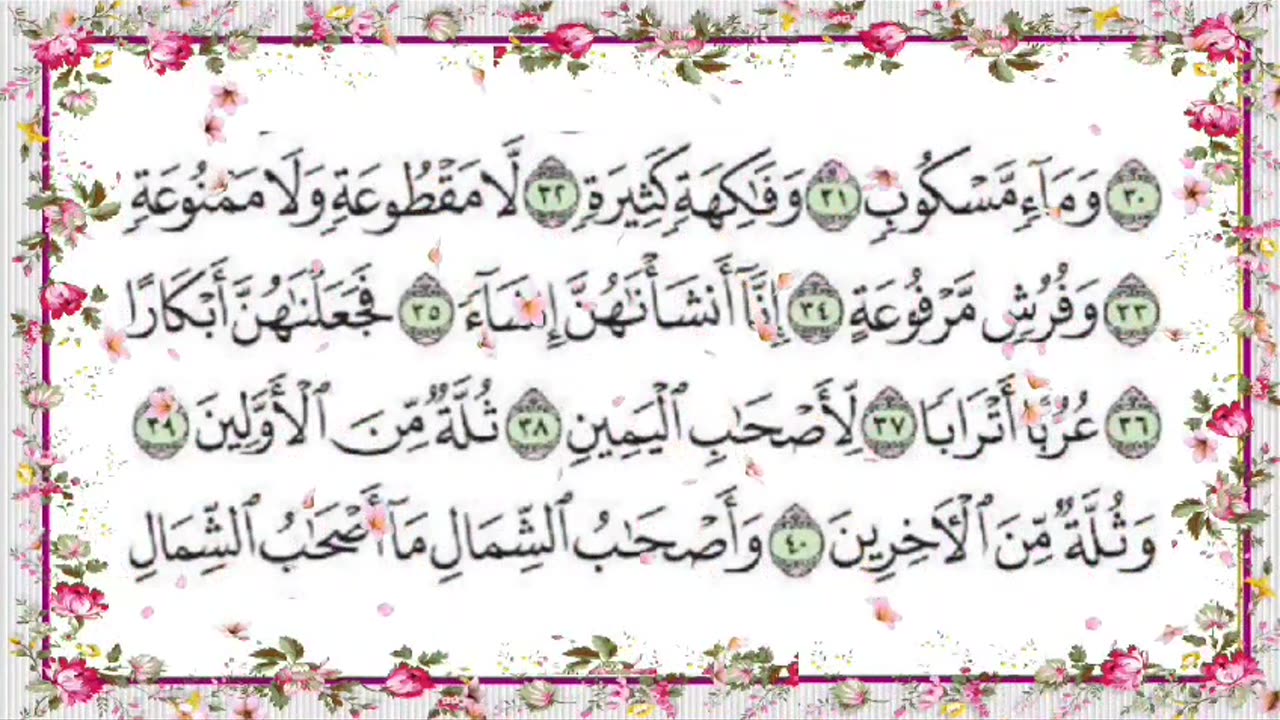 ٣٠ وَمَآءٍ مَّسْكُوبٍ ٣١ وَفَٰكِهَةٍ كَثِيرَةٍ ٣٢ لَّا مَقْطُوعَةٍ وَلَا مَمْنُوعَةٍ
٣٣ وَفُرُشٍ مَّرْفُوعَةٍ ٣٤ إِنَّآ أَنشَأْنَٰهُنَّ إِنشَآءً ٣٥ فَجَعَلْنَٰهُنَّ أَبْكَارًا
٣٦ عُرُبًا أَتْرَابًا ٣٧ لِّأَصْحَٰبِ ٱلْيَمِينِ ٣٨ ثُلَّةٌ مِّنَ ٱلْأَوَّلِينَ ٣٩
وَثُلَّةٌ مِّنَ ٱلْأَخِرِينَ ٤٠ وَأَصْحَٰبُ ٱلشِّمَالِ مَآ أَصْحَٰبُ ٱلشِّمَالِ